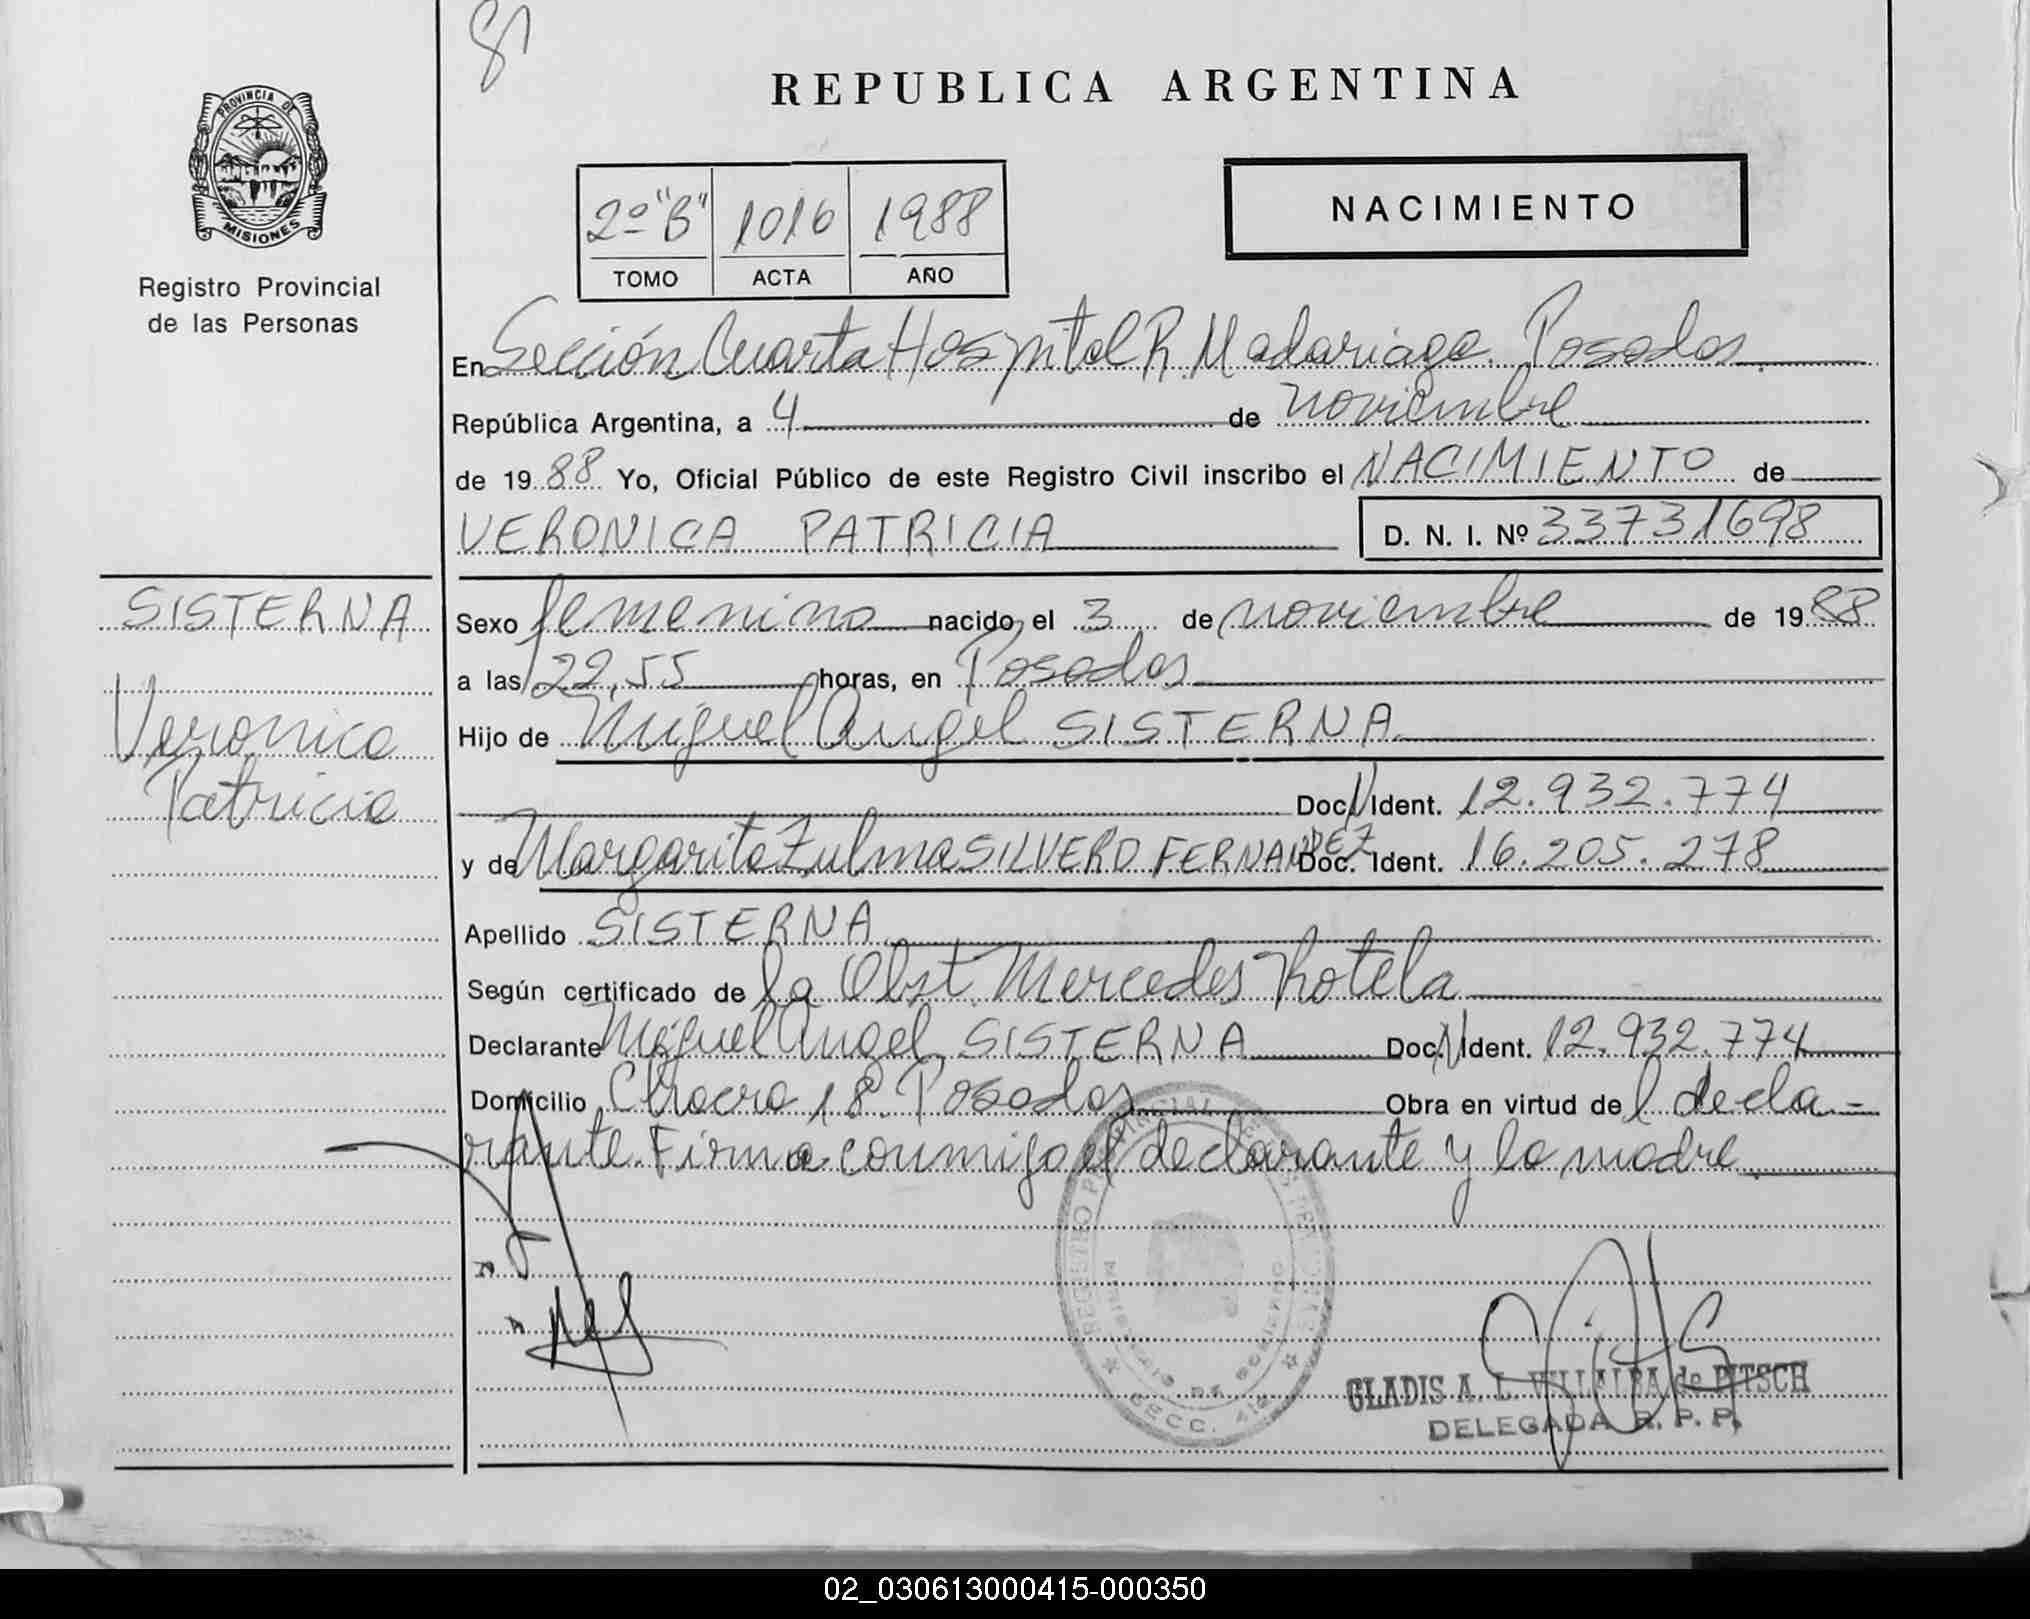 81
REPUBLICA ARGENTINA
PROVINCIA DE
MISIONES
Registro Provincial
de las Personas
2º "B" 1016 1988
TOMO ACTA AÑO
NACIMIENTO
En Sección Cuarta Hospital R. Madariaga. Posadas
República Argentina, a 4 de noviembre
de 1988 Yo, Oficial Público de este Registro Civil inscribo el NACIMIENTO de
VERONICA PATRICIA D. N. I. Nº 33731698
SISTERNA
Veronica
Patricia
Sexo femenino nacido el 3 de noviembre de 1988
a las 22,55 horas, en Posadas
Hijo de Miguel Angel SISTERNA
Doc. N Ident. 12.932.774
y de Margarita Zulma SILVERO FERNANDEZ Doc. Ident. 16.205.278
Apellido SISTERNA
Según certificado de la Obst. Mercedes Rotela
Declarante Miguel Angel SISTERNA Doc. N Ident. 12.932.774
Domicilio Chacra 18. Posadas Obra en virtud del decla-
rante. Firma conmigo el declarante y la madre
REGISTRO PROVINCIAL DE LAS PERSONAS
SECC. 4ta
GLADIS A. L. VILLALBA de PITSCH
DELEGADA R. P. P.
02_030613000415-000350